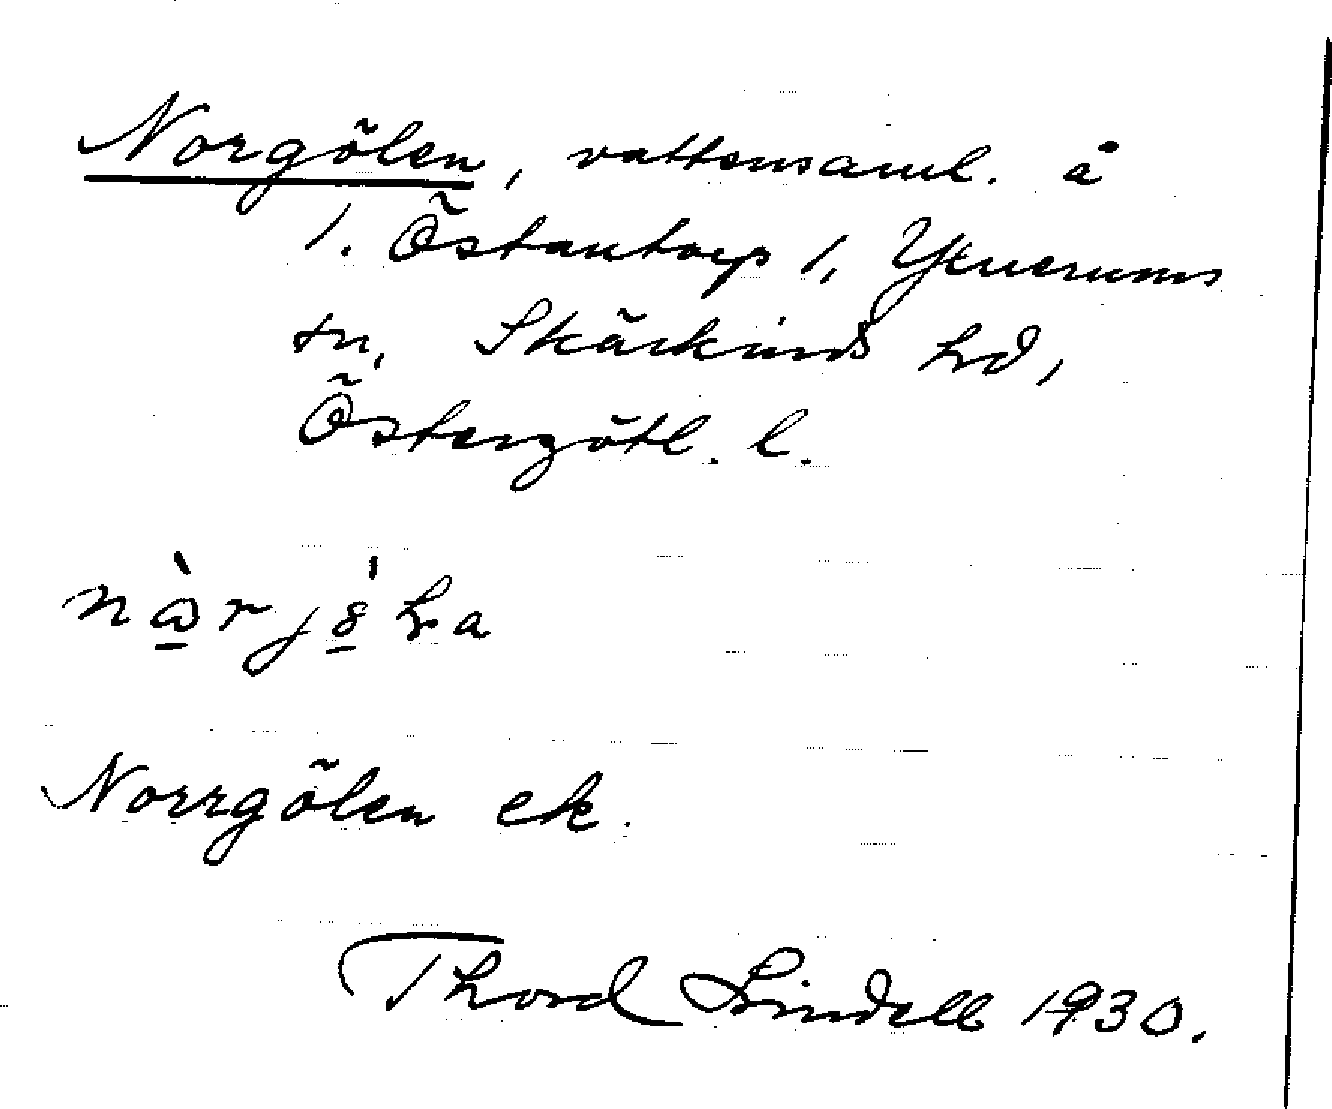 Norgölen, vattensaml. å
1. Östantorp 1, Yxnerums
sn, Skärkinds hd,
Östergötl. l.
Norrgölen ek.
Thord Lindell 1930.